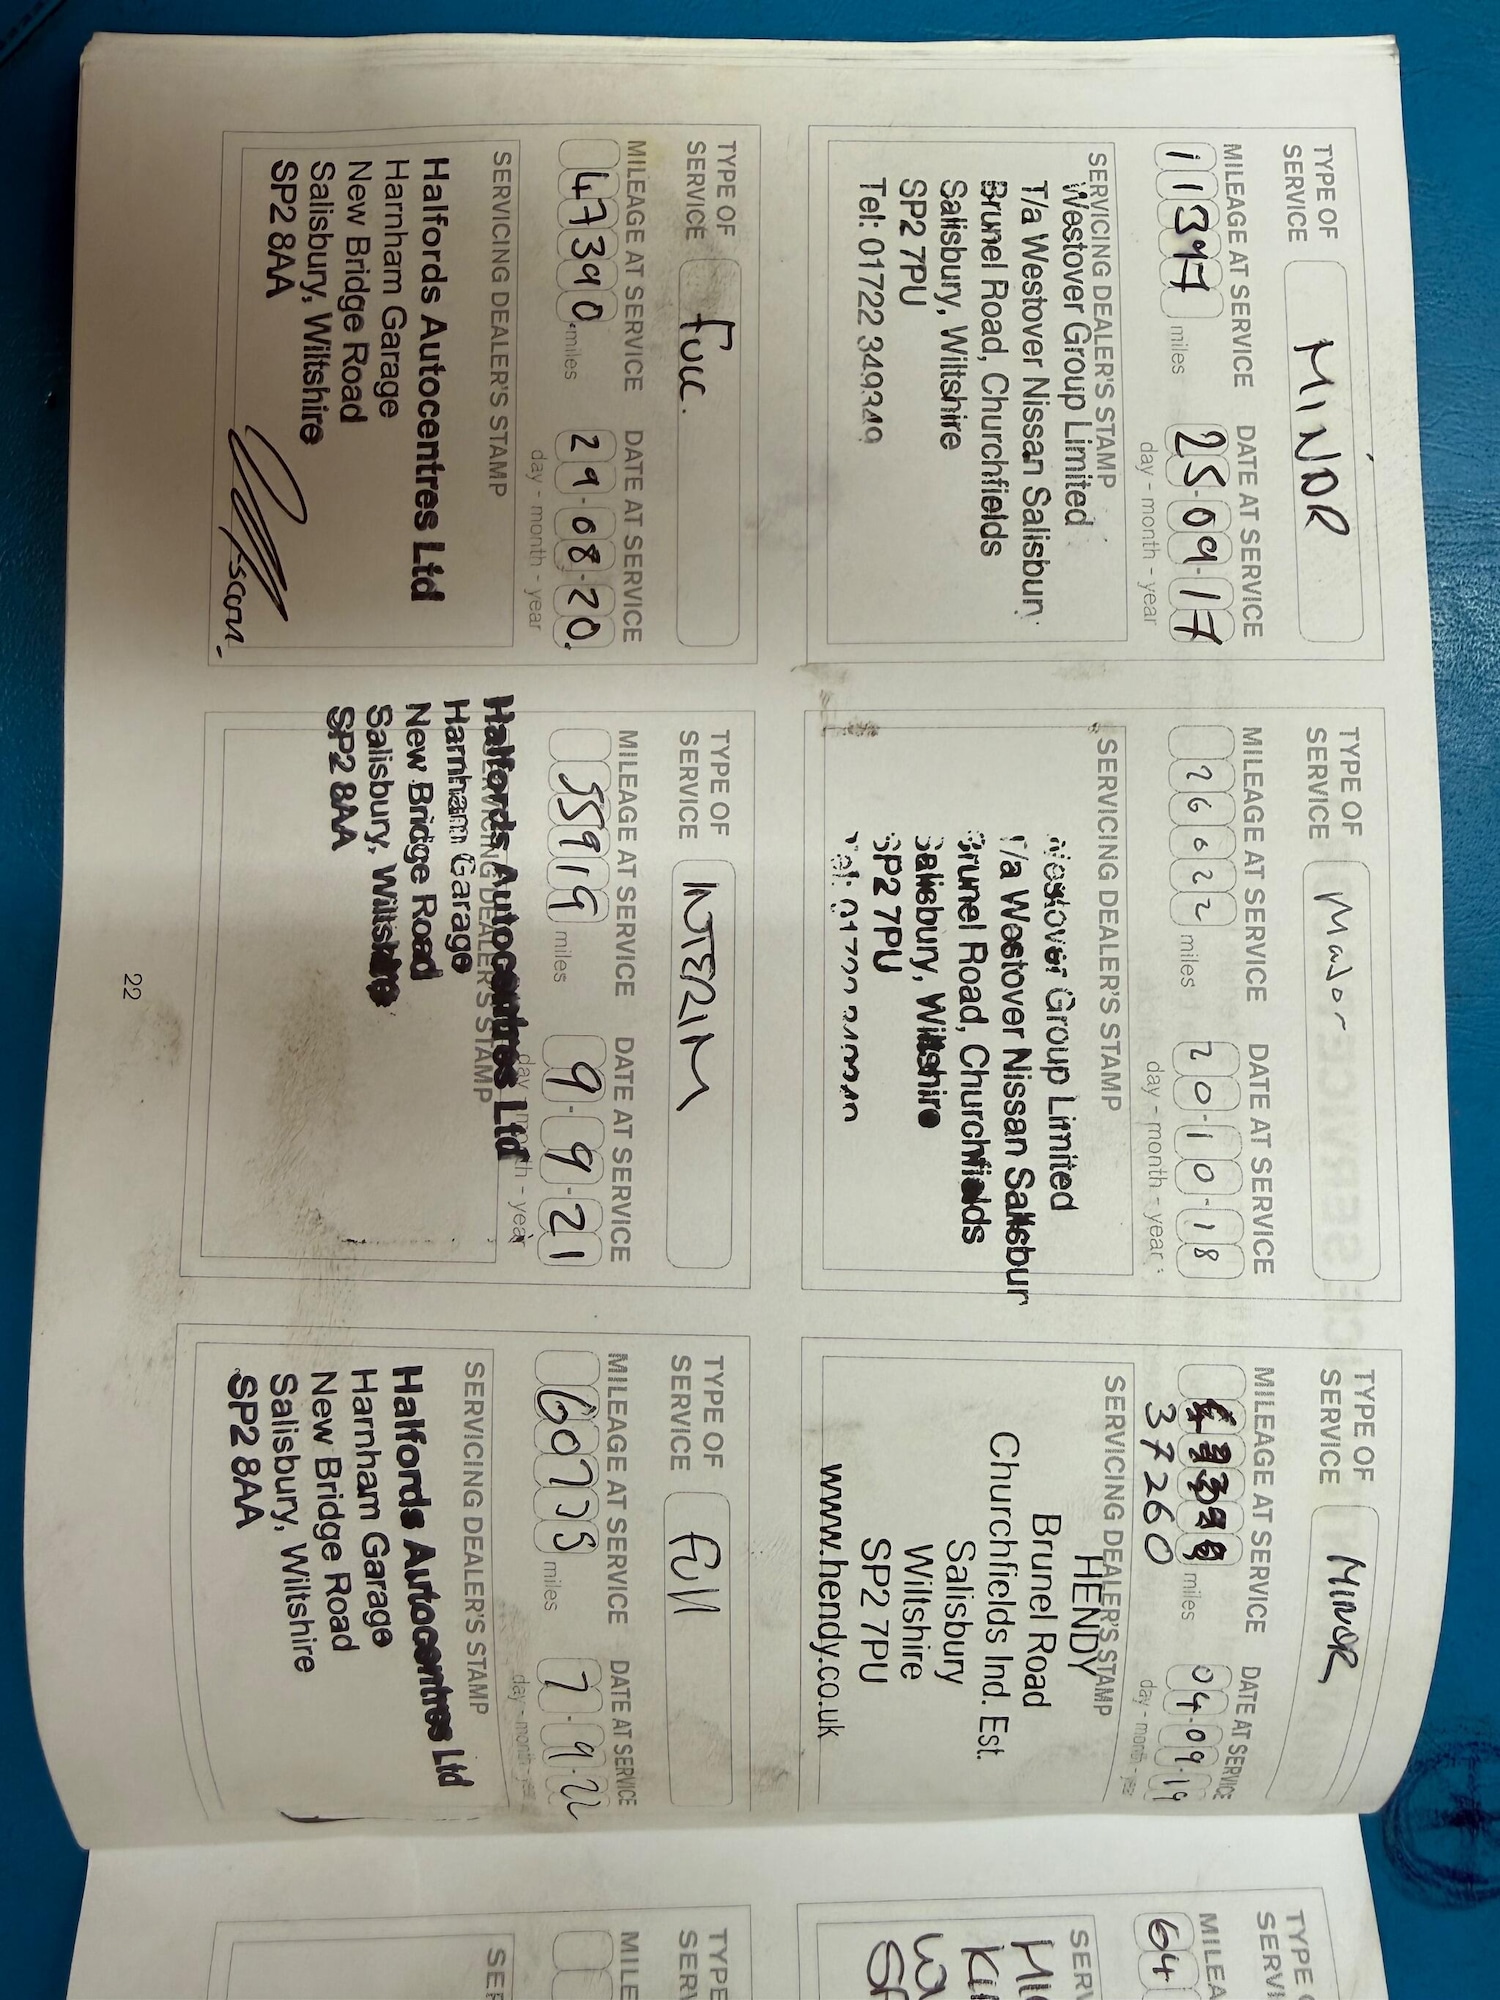 TYPE OF
SERVICE
MINOR
MILEAGE AT SERVICE
DATE AT SERVICE
11397 miles
25-09-17
day - month - year
SERVICING DEALER'S STAMP
Westover Group Limited
T/a Westover Nissan Salisbury
Brunel Road, Churchfields
Salisbury, Wiltshire
SP2 7PU
Tel: 01722 349349
TYPE OF
SERVICE
Major
MILEAGE AT SERVICE
DATE AT SERVICE
26622 miles
20-10-18
day - month - year
SERVICING DEALER'S STAMP
Westover Group Limited
T/a Westover Nissan Salisbur
Brunel Road, Churchfields
Salisbury, Wiltshire
SP2 7PU
TYPE OF
SERVICE
MINOR
MILEAGE AT SERVICE
DATE AT SERVICE
miles
37260
04-09-19
day - month - year
SERVICING DEALER'S STAMP
HENDY
Brunel Road
Churchfields Ind. Est.
Salisbury
Wiltshire
SP2 7PU
www.hendy.co.uk
TYPE OF
SERVICE
full.
MILEAGE AT SERVICE
DATE AT SERVICE
47390 miles
29-08-20.
day - month - year
SERVICING DEALER'S STAMP
Halfords Autocentres Ltd
Harnham Garage
New Bridge Road
Salisbury, Wiltshire
SP2 8AA
TYPE OF
SERVICE
INTERIM
MILEAGE AT SERVICE
DATE AT SERVICE
55919 miles
9-9-21
day - month - year
SERVICING DEALER'S STAMP
Halfords Autocentres Ltd
Harnham Garage
New Bridge Road
Salisbury, Wiltshire
SP2 8AA
TYPE OF
SERVICE
full
MILEAGE AT SERVICE
DATE AT SERVICE
60735 miles
7-9-22
day - month - year
SERVICING DEALER'S STAMP
Halfords Autocentres Ltd
Harnham Garage
New Bridge Road
Salisbury, Wiltshire
SP2 8AA
22
TYPE
SERVI
MILEA
64
SERV
TYPE
SERV
MILE
SER